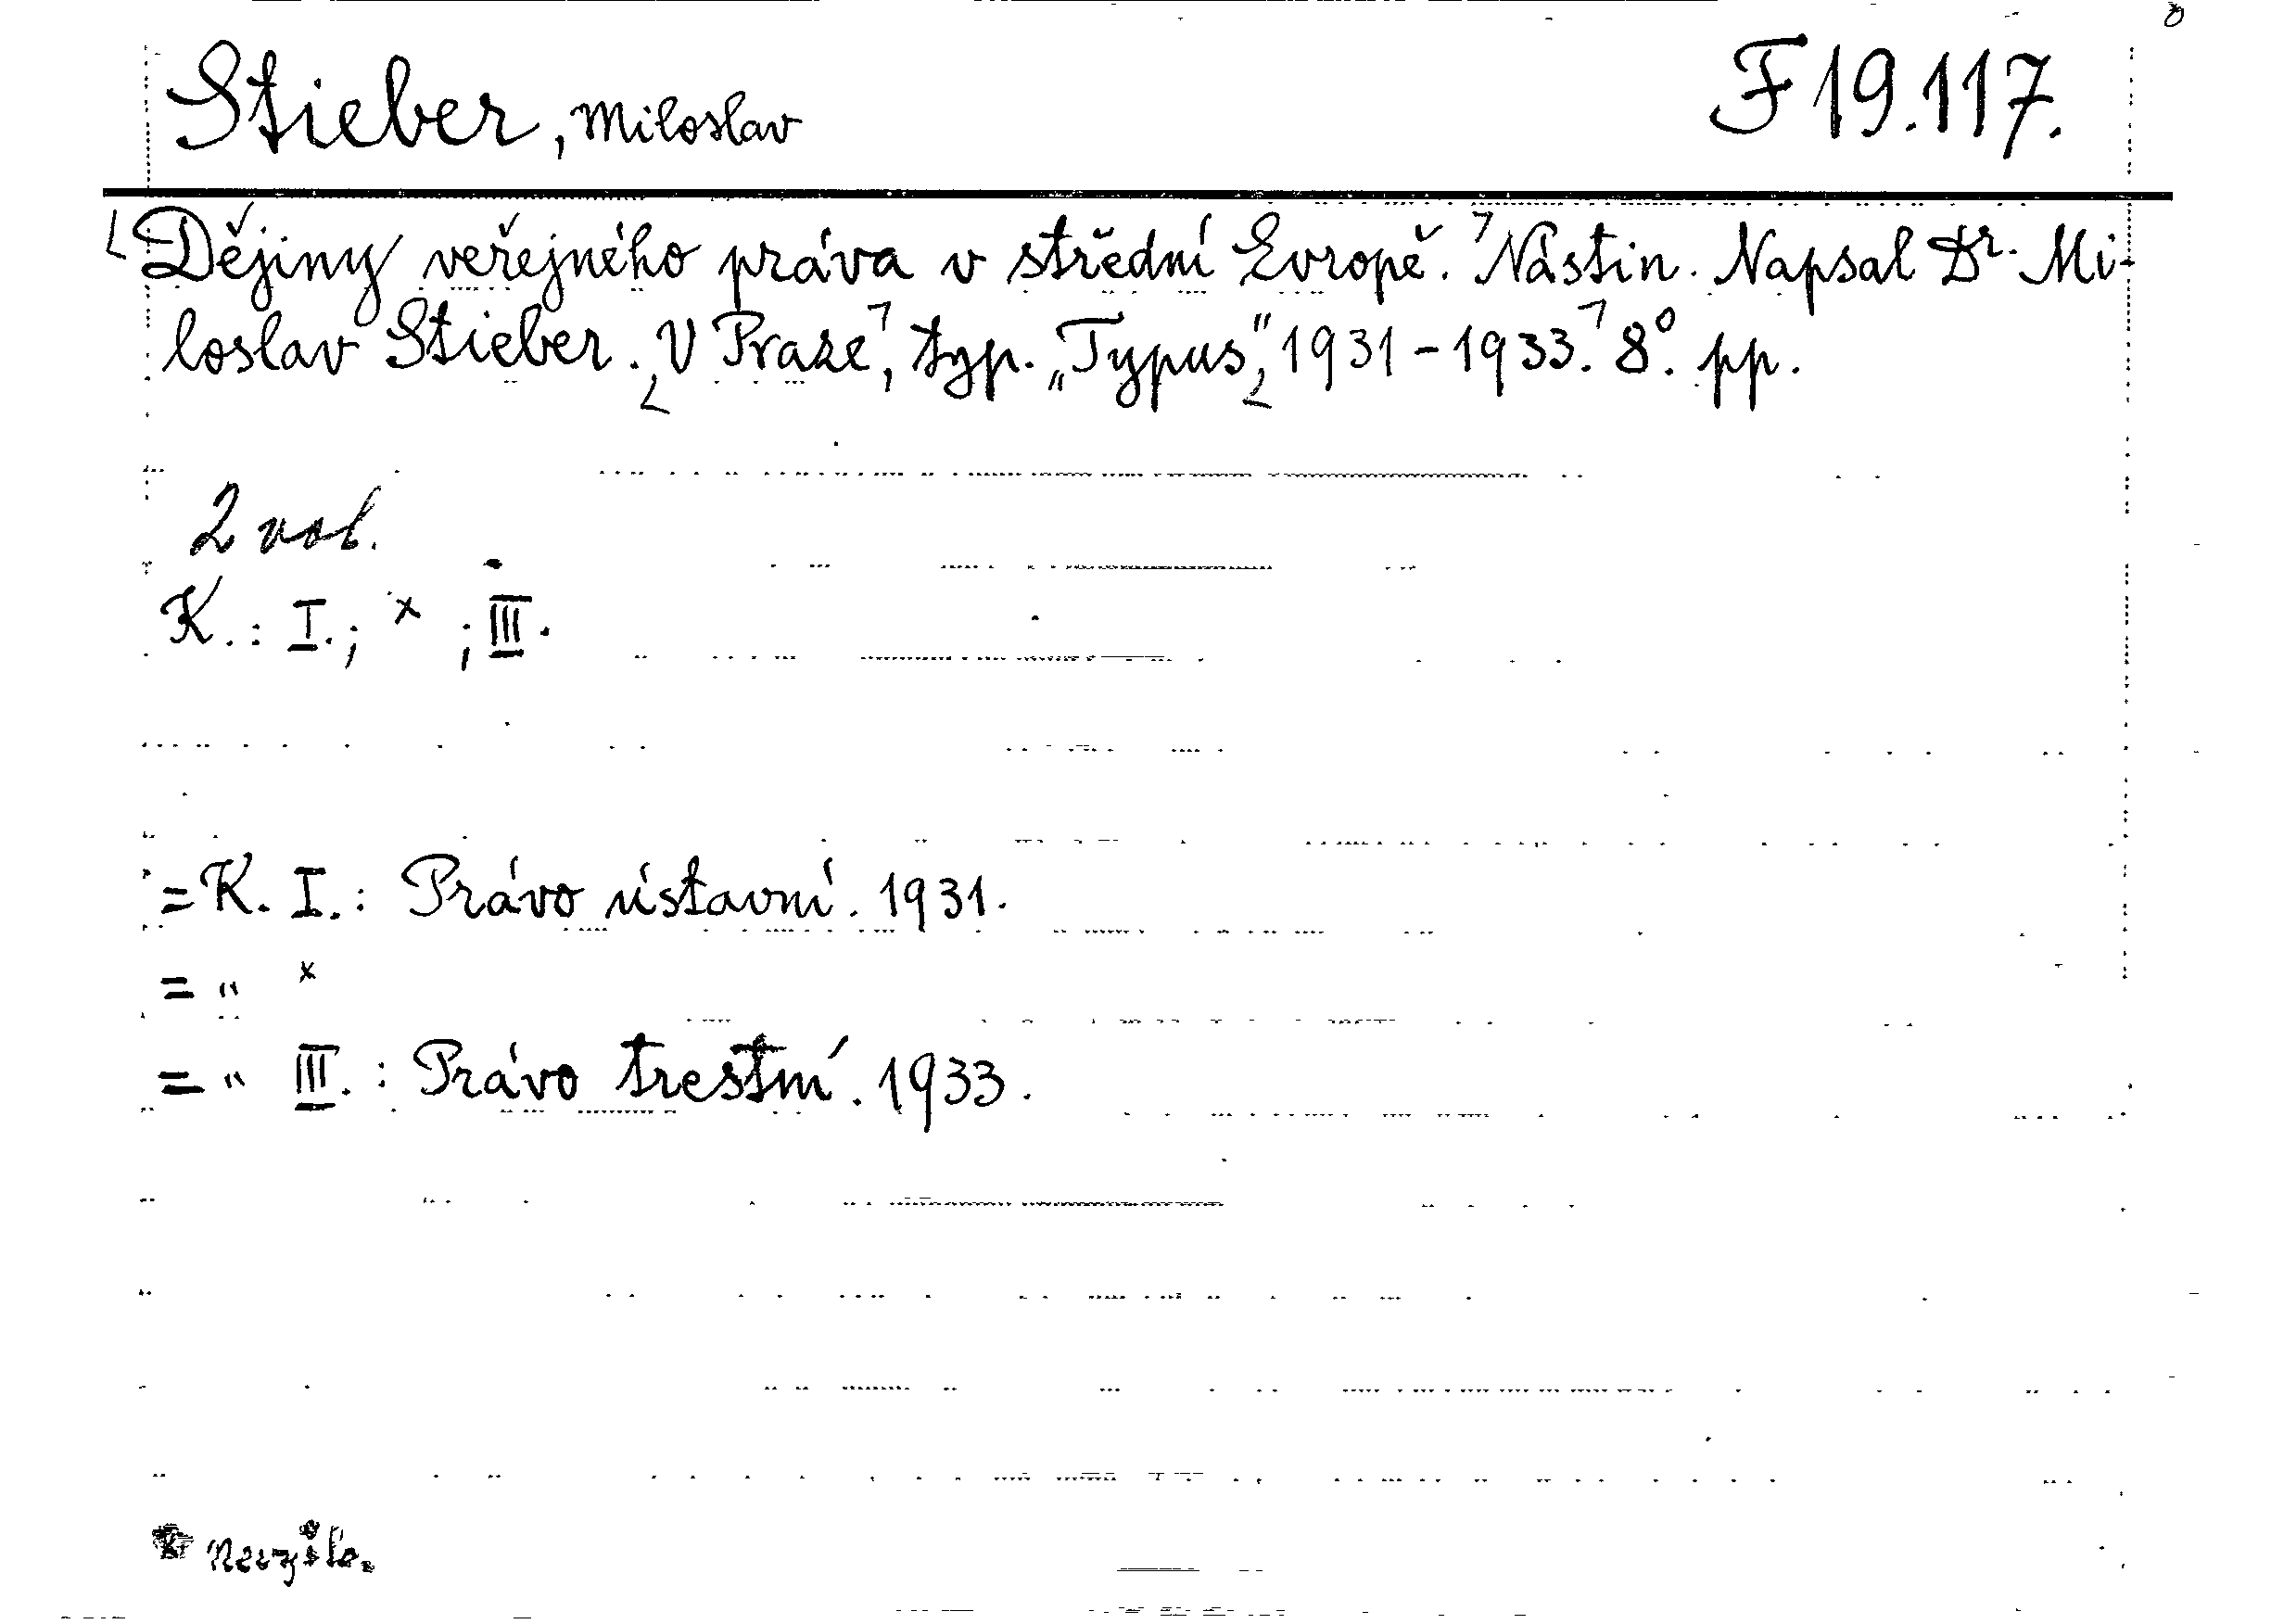 Stieber, Miloslav F 19.117.
Dějiny veřejného práva v střední Evropě. Nástin. Napsal Dr. Mi-
loslav Stieber. V Praze, typ. „Typus“, 1931-1933. 8°. pp.
2 vol.
K.: I.; × ; III.
= K. I.: Právo ústavní. 1931.
= „ ×
= „ III.: Právo trestní. 1933.
× Nevyšlo.